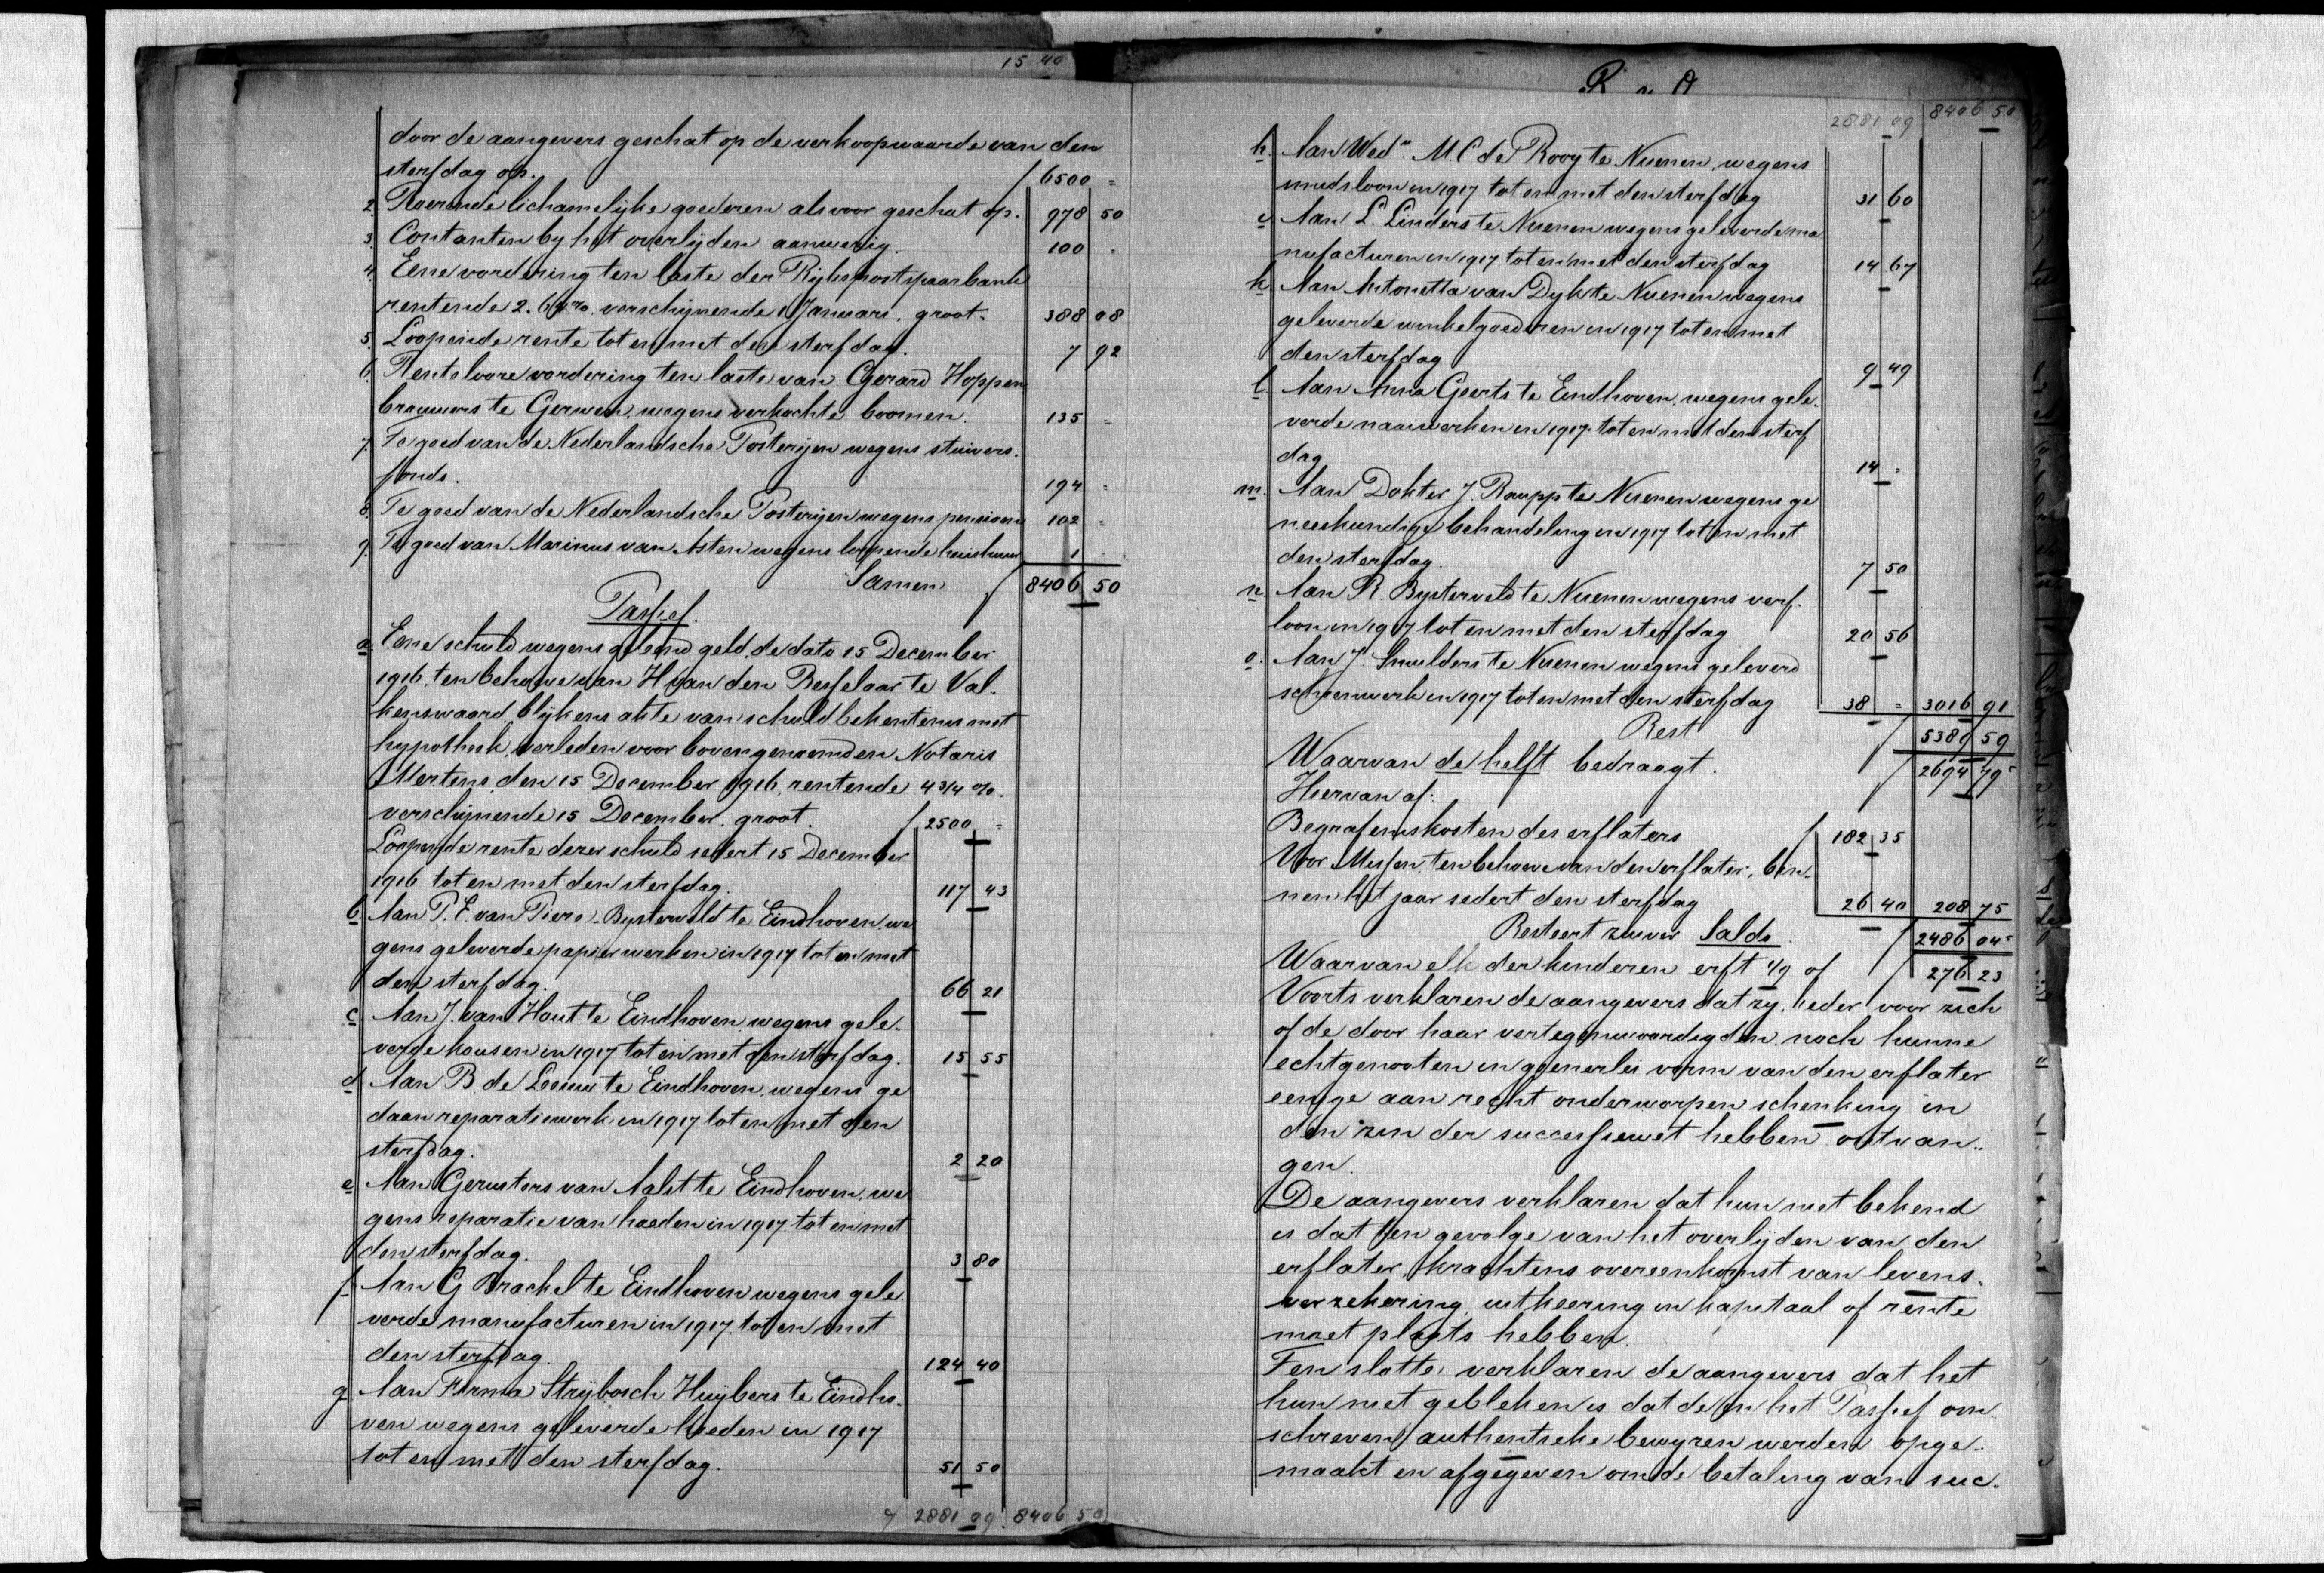 15 40
door de aangevers geschat op de verkoopwaarde van den
sterfdag op. f 6500 =
2. Roerende lichamelijke goederen als voor geschat op. 978 50
3. Contanten by het overlijden aanwezig. 100 -
4. Eene vordering ten laste der Rijkspostspaarbank
rentende 2.64%. verschijnende 1 Januari. groot. 388 08
5. Loopende rente tot en met den sterfdag. 7 92
6. Rentelooze vordering ten laste van Gerard Hoppen
brouwers te Gerwen, wegens verkochte boomen. 135 =
7. Te goed van de Nederlandsche Posterijen wegens stuivers.
fonds. 194 =
8. Te goed van de Nederlandsche Posterijen wegens pensioen 102 =
9. Te goed van Marinus van Asten wegens loopende huishuur 1 -
Samen f 8406 50
Passief.
a. Eene schuld wegens geleend geld, de dato 15 December
1916, ten behoeve van H van den Besselaar te Val-
kenswaard, blijkens akte van schuldbekentenis met
hypotheek, verleden voor bovengenoemden Notaris
Mertens, den 15 December 1916, rentende 4 3/4 %.
verschijnende 15 December. groot. f 2500 =
Loopende rente dezer schuld sedert 15 December
1916 tot en met den sterfdag. 117 43
b Aan P. E. van Piere-Bysterveld te Eindhoven, we
gens geleverde papierwerken in 1917 tot en met
den sterfdag. 66 21
c Aan J. van Hout te Eindhoven, wegens gele-
verde kousen in 1917 tot en met den sterfdag. 15 55
d Aan B. de Leeuw te Eindhoven, wegens ge
daan reparatiewerk in 1917 tot en met den
sterfdag. 2 20
e Aan Gezusters van Aalst te Eindhoven, we
gens reparatie van hoeden in 1917 tot en met
den sterfdag. 3 80
f. Aan G Brachel te Eindhoven wegens gele
verde manufacturen in 1917, tot en met
den sterfdag. 124 40
g Aan Firma Strijbosch Huijbers te Eindho-
ven wegens geleverde hoeden in 1917
tot en met den sterfdag. 51 50
2881 09 8406 50
2881 09 8406 50
h. Aan Wede. M. C de Rooy te Nuenen, wegens
in 1917 tot en met den sterfdag 31 60
Aan L. Linders te Nuenen wegens geleverde ma
nufacturen in 1917 tot en met den sterfdag 14 67
k Aan Antonetta van Dyk te Nuenen wegens
geleverde winkelgoederen in 1917 tot en met
den sterfdag 9 49
l. Aan Anna Geerts te Eindhoven, wegens gele-
verde naaiwerken in 1917 tot en met den sterf
dag 14 -
m. Aan Dokter J. Raupp te Nuenen wegens ge
neeskundige behandeling in 1917 tot en met
den sterfdag. 7 50
n Aan R Bysterveld te Nuenen wegens verf-
loon in 1917 tot en met den sterfdag 20 56
o. Aan J. Smulders te Nuenen wegens geleverd
schoenwerk in 1917 tot en met den sterfdag 38 = 3016 91
Rest f 5389 59
Waarvan de helft bedraagt. f 2694 79⁵
Hiervan af:
Begrafeniskosten des erflaters f 182 35
Voor Missen, ten behoeve van den erflater, bin-
nen het jaar sedert den sterfdag 26 40 208 75
Resteert zuiver Saldo. f 2486 04⁵
Waarvan elk der kinderen erft 1/9 of f 276 23
Voorts verklaren de aangevers dat zy, ieder voor zich
of de door haar vertegenwoordigden, noch hunne
echtgenooten in geenerlei vorm van den erflater
eenige aan recht onderworpen schenking in
den zin der successiewet hebben ontvan-
gen.
De aangevers verklaren dat hun niet bekend
is dat ten gevolge van het overlijden van den
erflater, krachtens overeenkomst van levens-
verzekering, uitkeering in kapitaal of rente
moet plaats hebben.
Ten slotte, verklaren de aangevers dat het
hun niet gebleken is dat de in het Passief om
schreven authentieke bewyzen werden opge-
maakt en afgegeven om de betaling van suc-